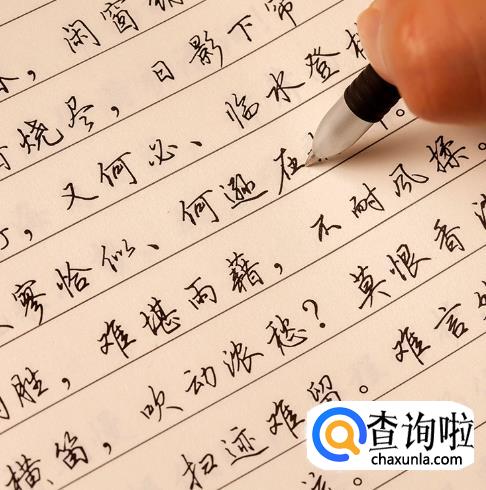 ，闲窗
烧尽，日影下帘
，又何必、临水登
寥恰似、何逊在
胜，难堪雨藉，不耐风揉。
横笛，吹动浓愁？莫恨香
扫迹难留。难言
查询啦
chaxunla.com